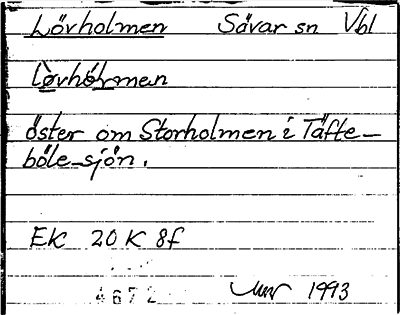 Lövholmen Sävar sn Vbl
öster om Storholmen i Täfte-
böle-sjön.
Ek 20 K 8f
4672
1993